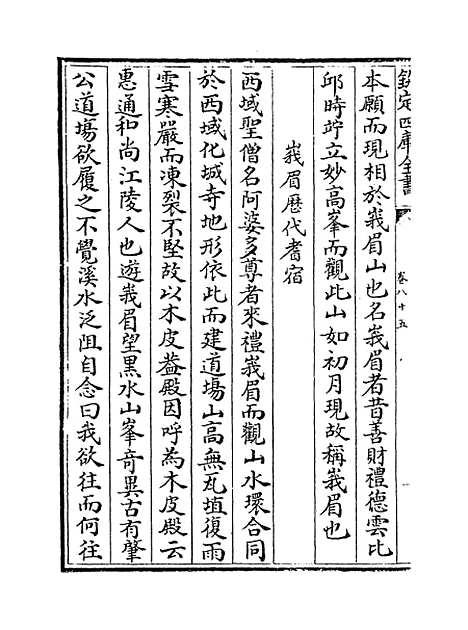 欽定四庫全書
卷八十五
本願而現相於峩眉山也名峩眉者昔善財禮德雲比
邱時竚立妙高峯而觀此山如初月現故稱峩眉也
峩眉歷代耆宿
西域聖僧名阿婆多尊者來禮峩眉而觀山水環合同
於西域化城寺地形依此而建道場山高無瓦埴復雨
雪寒嚴而凍裂不堅故以木皮葢殿因呼為木皮殿云
惠通和尚江陵人也遊峩眉望黑水山峯竒異古有肇
公道場欲履之不覺溪水泛阻自念曰我欲往而何往